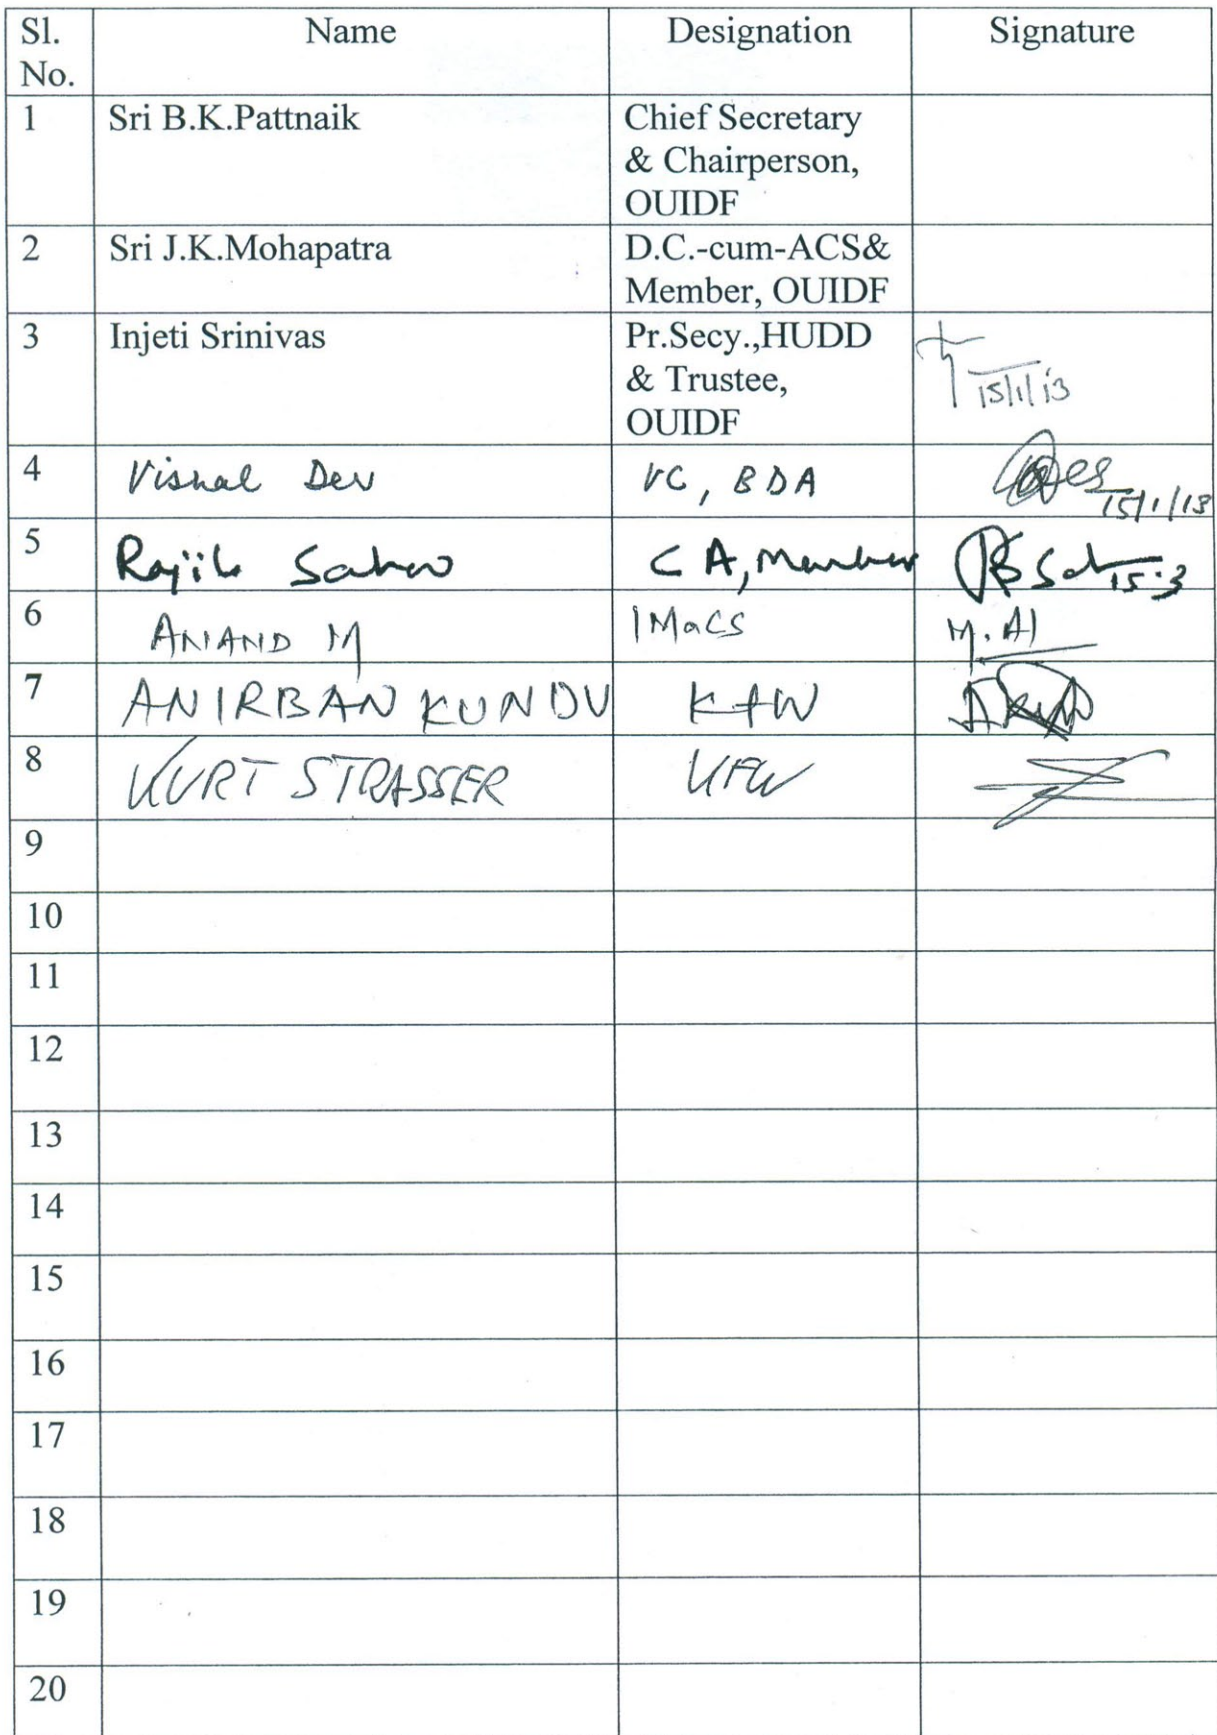 Sl. Name Designation Signature
No.
1 Sri B.K.Pattnaik Chief Secretary
& Chairperson,
OUIDF
2 Sri J.K.Mohapatra D.C.-cum-ACS&
Member, OUIDF
3 Injeti Srinivas Pr.Secy.,HUDD
& Trustee,
OUIDF
15/1/13
4 Vishal Dev VC, BDA
15/1/13
5 Sahoo CA, Member
6 ANAND M IMaCS M.
7 ANIRBAN KUNDU KfW
8 KURT STRASSER KFW
9
10
11
12
13
14
15
16
17
18
19
20